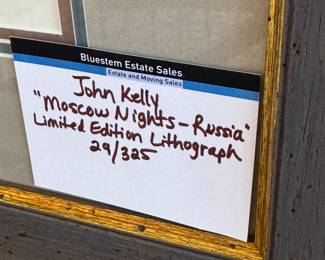 Bluestem Estate Sales
Estate and Moving Sales
John Kelly
"Moscow Nights - Russia"
Limited Edition Lithograph
29/325